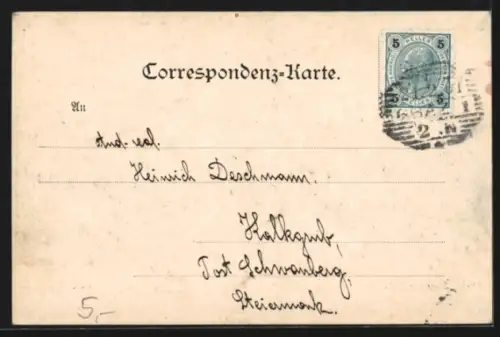 Correspondenz-Karte.
An
Stud. real.
Heinrich Deschmann.
Kalkgrub,
Post Schwanberg,
Steiermark.
5,-
5 5
5 5
2 N